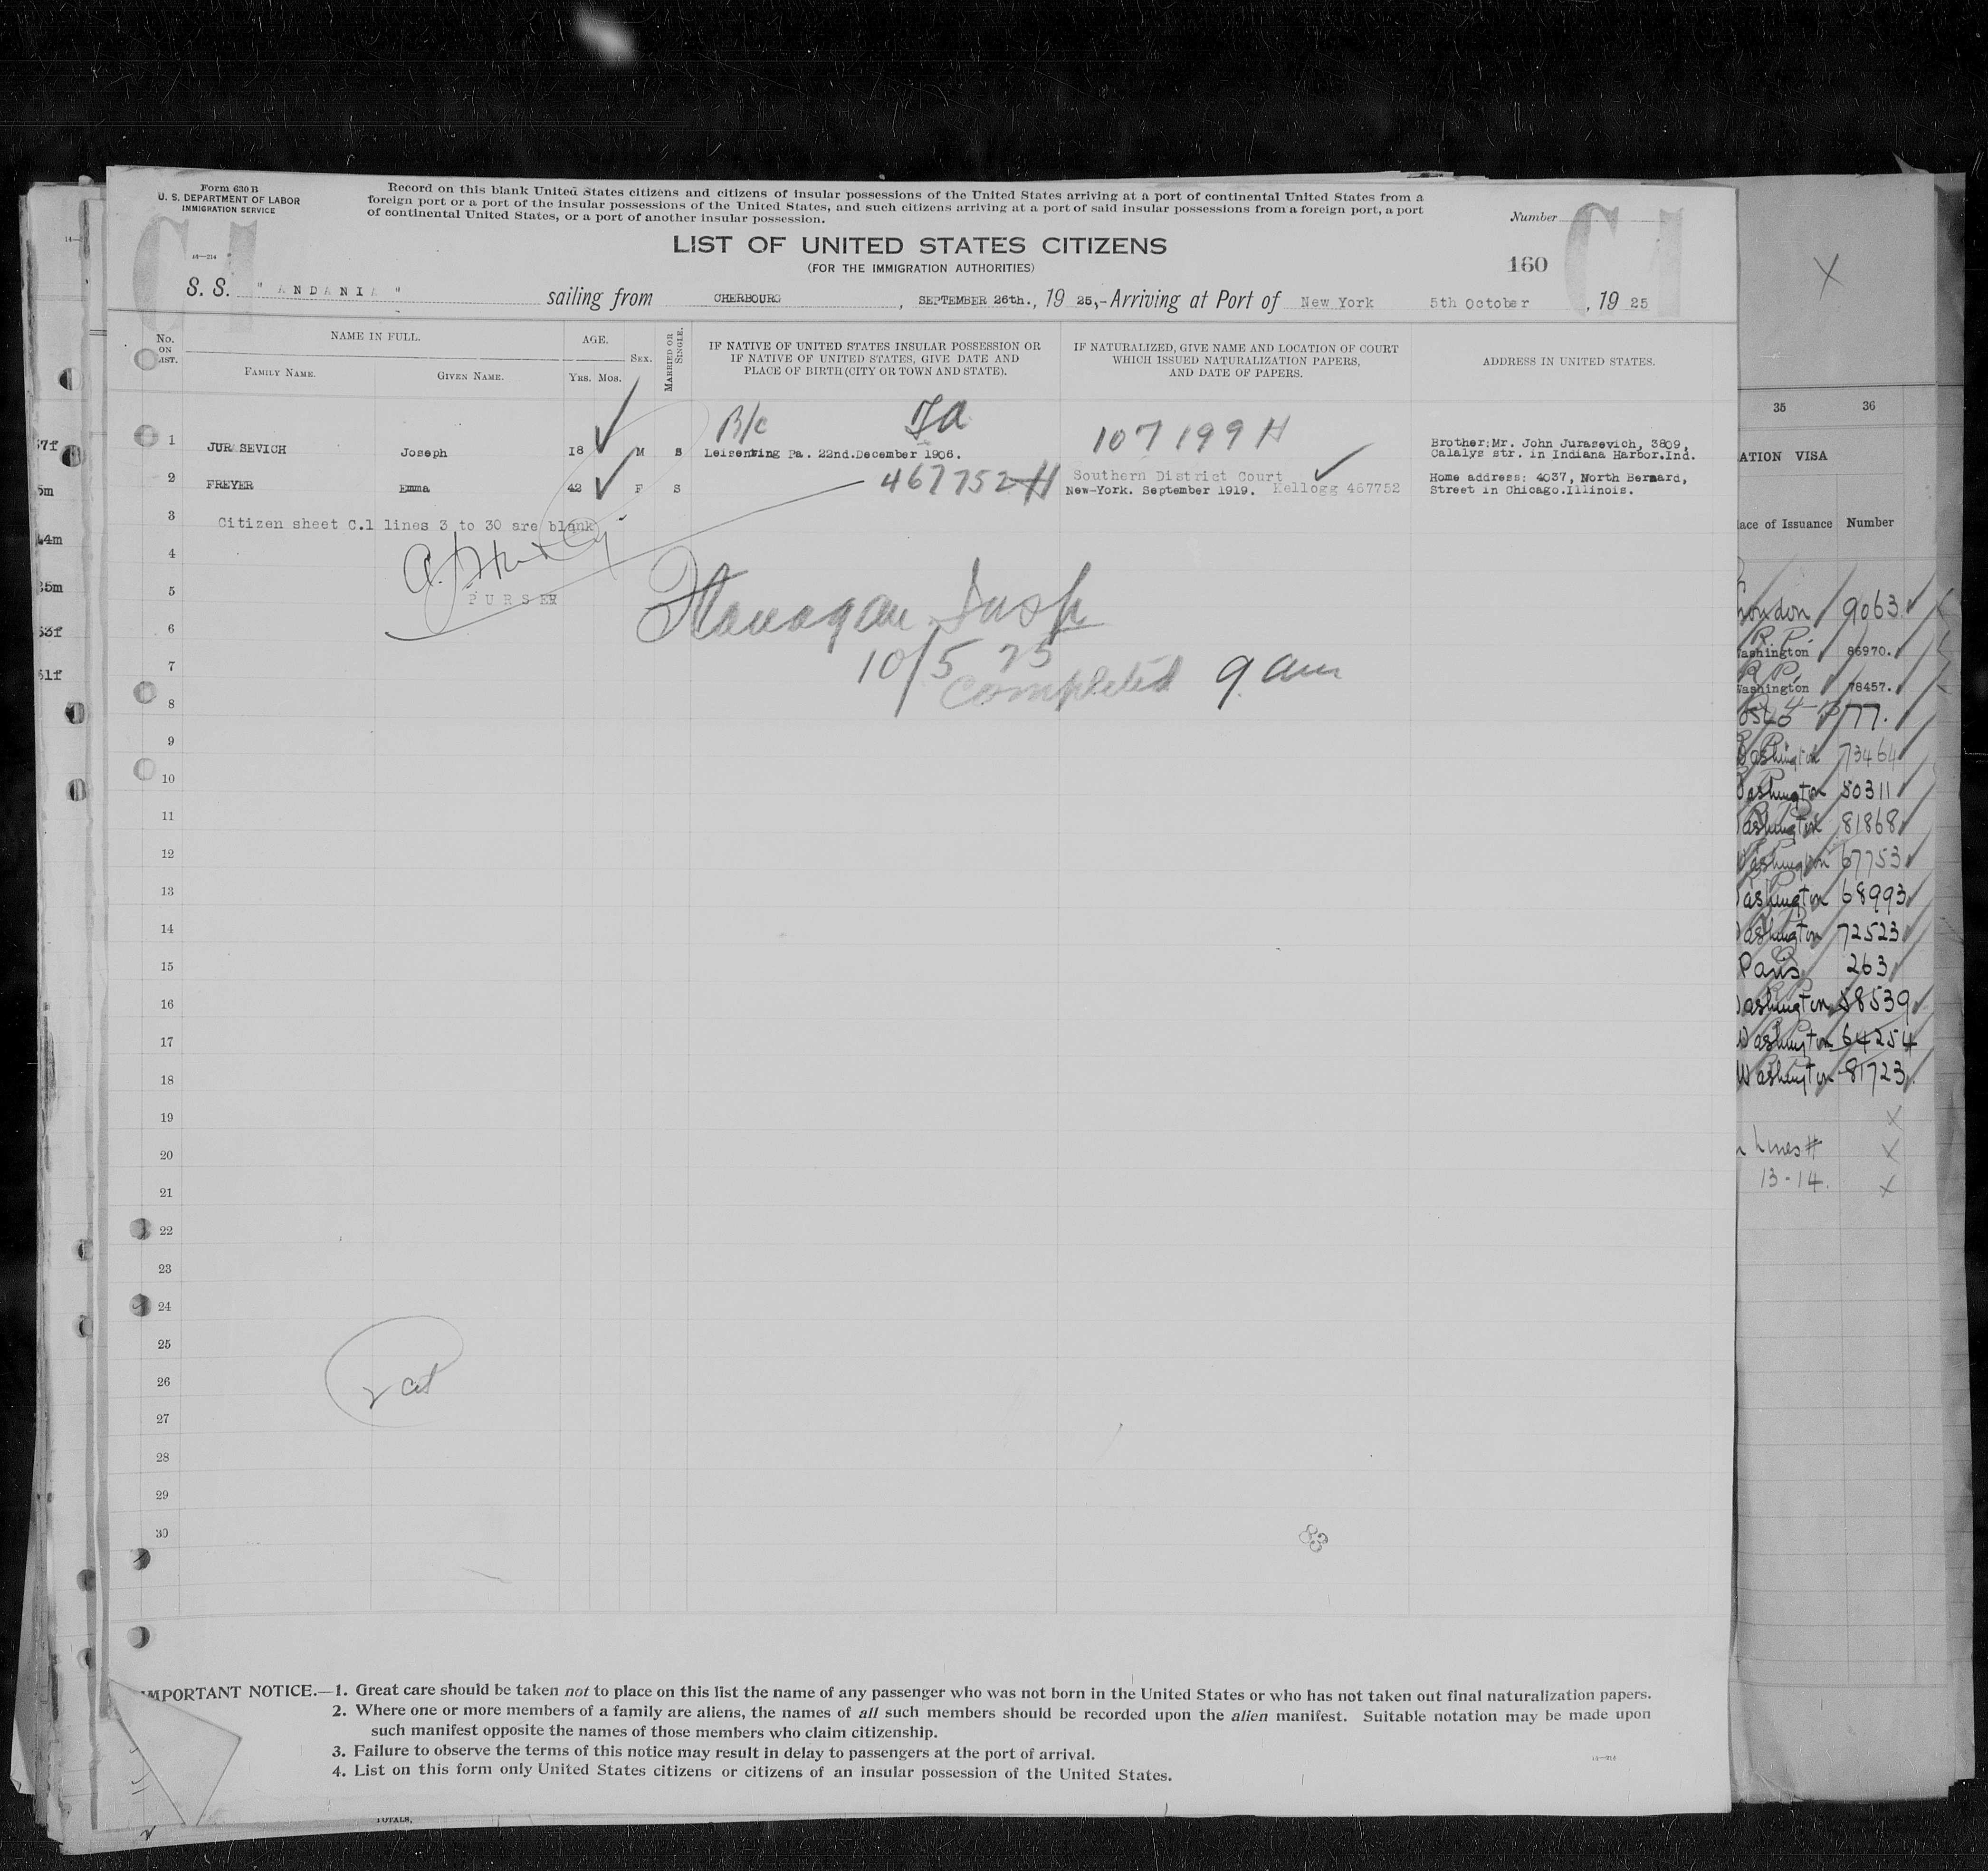 Form 630 B
U. S. DEPARTMENT OF LABOR
IMMIGRATION SERVICE
Record on this blank United States citizens and citizens of insular possessions of the United States arriving at a port of continental United States from a
foreign port or a port of the insular possessions of the United States, and such citizens arriving at a port of said insular possessions from a foreign port, a port
of continental United States, or a port of another insular possession.
Number
C1
C1
LIST OF UNITED STATES CITIZENS
(FOR THE IMMIGRATION AUTHORITIES)
160
14—214
S. S. "ANDANIA" sailing from CHERBOURG, SEPTEMBER 26th., 1925,- Arriving at Port of New York 5th October, 1925
No. ON LIST.
NAME IN FULL.
FAMILY NAME. GIVEN NAME.
AGE.
YRS. MOS.
SEX.
MARRIED OR SINGLE.
IF NATIVE OF UNITED STATES INSULAR POSSESSION OR
IF NATIVE OF UNITED STATES, GIVE DATE AND
PLACE OF BIRTH (CITY OR TOWN AND STATE).
IF NATURALIZED, GIVE NAME AND LOCATION OF COURT
WHICH ISSUED NATURALIZATION PAPERS,
AND DATE OF PAPERS.
ADDRESS IN UNITED STATES.
B/c 107199 H
1 JURASEVICH Joseph 18 M S Leisenring Pa. 22nd.December 1906. Brother:Mr. John Jurasevich, 3809,
Calalys str. in Indiana Harbor.Ind.
2 FREYER Emma 42 F S 467752 H Southern District Court Home address: 4037, North Bernard,
New-York. September 1919. Kellogg 467752 Street in Chicago.Illinois.
3 Citizen sheet C.1 lines 3 to 30 are blank
4
5 PURSER
Flanagan Insp
6
10/5 25
7
Completed 9 am
8
9
10
11
12
13
14
15
16
17
18
19
20
21
22
23
24
25
26
27
28
29
30
IMPORTANT NOTICE.—1. Great care should be taken not to place on this list the name of any passenger who was not born in the United States or who has not taken out final naturalization papers.
2. Where one or more members of a family are aliens, the names of all such members should be recorded upon the alien manifest. Suitable notation may be made upon
such manifest opposite the names of those members who claim citizenship.
3. Failure to observe the terms of this notice may result in delay to passengers at the port of arrival.
4. List on this form only United States citizens or citizens of an insular possession of the United States.
14—214
TOTALS,
35 36
ATION VISA
lace of Issuance Number
London 9063
R.P.
Washington 86970.
R.P.
Washington 78457.
77.
Washington 73464
Washington 80311
Washington 81868
Washington 67753
Washington 68993
Washington 72523
Paris 263
Washington 58539
Washington 64254
Washington 81723
Lines #
13-14.